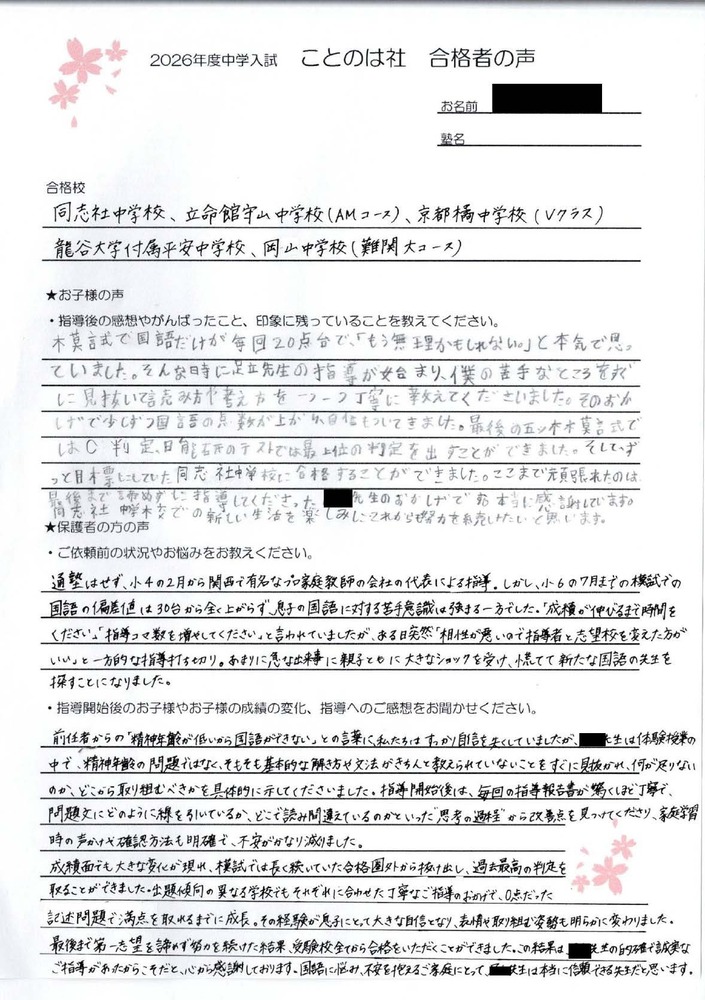 2026年度中学入試　ことのは社　合格者の声
お名前
塾名
合格校
同志社中学校、立命館守山中学校(AMコース)、京都橘中学校(Vクラス)
龍谷大学付属平安中学校、岡山中学校(難関大コース)
★お子様の声
・指導後の感想やがんばったこと、印象に残っていることを教えてください。
模試で国語だけが毎回20点台で、「もう無理かもしれない。」と本気で思っ
ていました。そんな時に足立先生の指導が始まり、僕の苦手なところをすぐ
に見抜いて読み方や考え方を一つ一つ丁寧に教えてくださいました。そのおか
げで少しずつ国語の点数が上がり、自信もついてきました。最後の五ツ木模試で
はC判定、日能研のテストでは最上位の判定を出すことができました。そして、ず
っと目標にしていた同志社中学校に合格することができました。ここまで頑張れたのは
最後まで諦めずに指導してくださった先生のおかげです。本当に感謝しています。
同志社中学校での新しい生活を楽しみにこれからも努力を続けたいと思います。
★保護者の方の声
・ご依頼前の状況やお悩みをお教えください。
通塾はせず、小4の2月から関西で有名なプロ家庭教師の会社の代表による指導。しかし、小6の7月までの模試での
国語の偏差値は30台から全く上がらず、息子の国語に対する苦手意識は強まる一方でした。「成績が伸びるまで時間を
ください」「指導コマ数を増やしてください」と言われていましたが、ある日突然「相性が悪いので指導者と志望校を変えた方が
いい」と一方的な指導打ち切り。あまりに急な出来事に親子ともに大きなショックを受け、慌てて新たな国語の先生を
探すことになりました。
・指導開始後のお子様やお子様の成績の変化、指導へのご感想をお聞かせください。
前任者からの「精神年齢が低いから国語ができない」との言葉に、私たちはすっかり自信を失くしていましたが、先生は体験授業の
中で、精神年齢の問題ではなく、そもそも基本的な解き方や文法がきちんと教えられていないことをすぐに見抜かれ、何が足りない
のか、どこから取り組むべきかを具体的に示してくださいました。指導開始後は、毎回の指導報告書が驚くほど丁寧で、
問題文にどのように線を引いているか、どこで読み間違えているのかといった"思考の過程"から改善点を見つけてくださり、家庭学習
時の声かけや確認方法も明確で、不安がかなり減りました。
成績面でも大きな変化が現れ、模試では長く続いていた合格圏外から抜け出し、過去最高の判定を
取ることができました。出題傾向の異なる学校でもそれぞれに合わせた丁寧なご指導のおかげで、0点だった
記述問題で満点を取れるまでに成長。その経験が息子にとって大きな自信となり、表情や取り組む姿勢も明らかに変わりました。
最後まで第一志望を諦めず努力を続けた結果、受験校全てから合格をいただくことができました。この結果は先生の的確で誠実な
ご指導があったからこそだと、心から感謝しております。国語に悩み、不安を抱えるご家庭にとって、先生は本当に信頼できる先生だと思います。